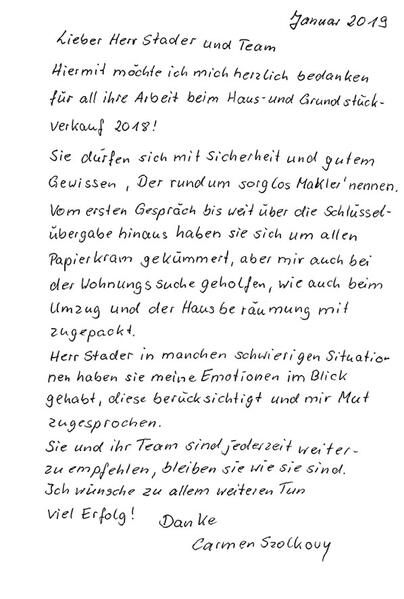 Januar 2019
Lieber Herr Stader und Team
Hiermit möchte ich mich herzlich bedanken
für all ihre Arbeit beim Haus- und Grundstück-
verkauf 2018!
Sie dürfen sich mit Sicherheit und gutem
Gewissen, 'Der rundum sorglos Makler' nennen.
Vom ersten Gespräch bis weit über die Schlüssel-
übergabe hinaus haben sie sich um allen
Papierkram gekümmert, aber mir auch bei
der Wohnungssuche geholfen, wie auch beim
Umzug und der Hausberäumung mit
zugepackt.
Herr Stader in manchen schwierigen Situatio-
nen haben sie meine Emotionen im Blick
gehabt, diese berücksichtigt und mir Mut
zugesprochen.
Sie und ihr Team sind jederzeit weiter-
zu empfehlen, bleiben sie wie sie sind.
Ich wünsche zu allem weiteren Tun
viel Erfolg!
Danke
Carmen Szolkovy